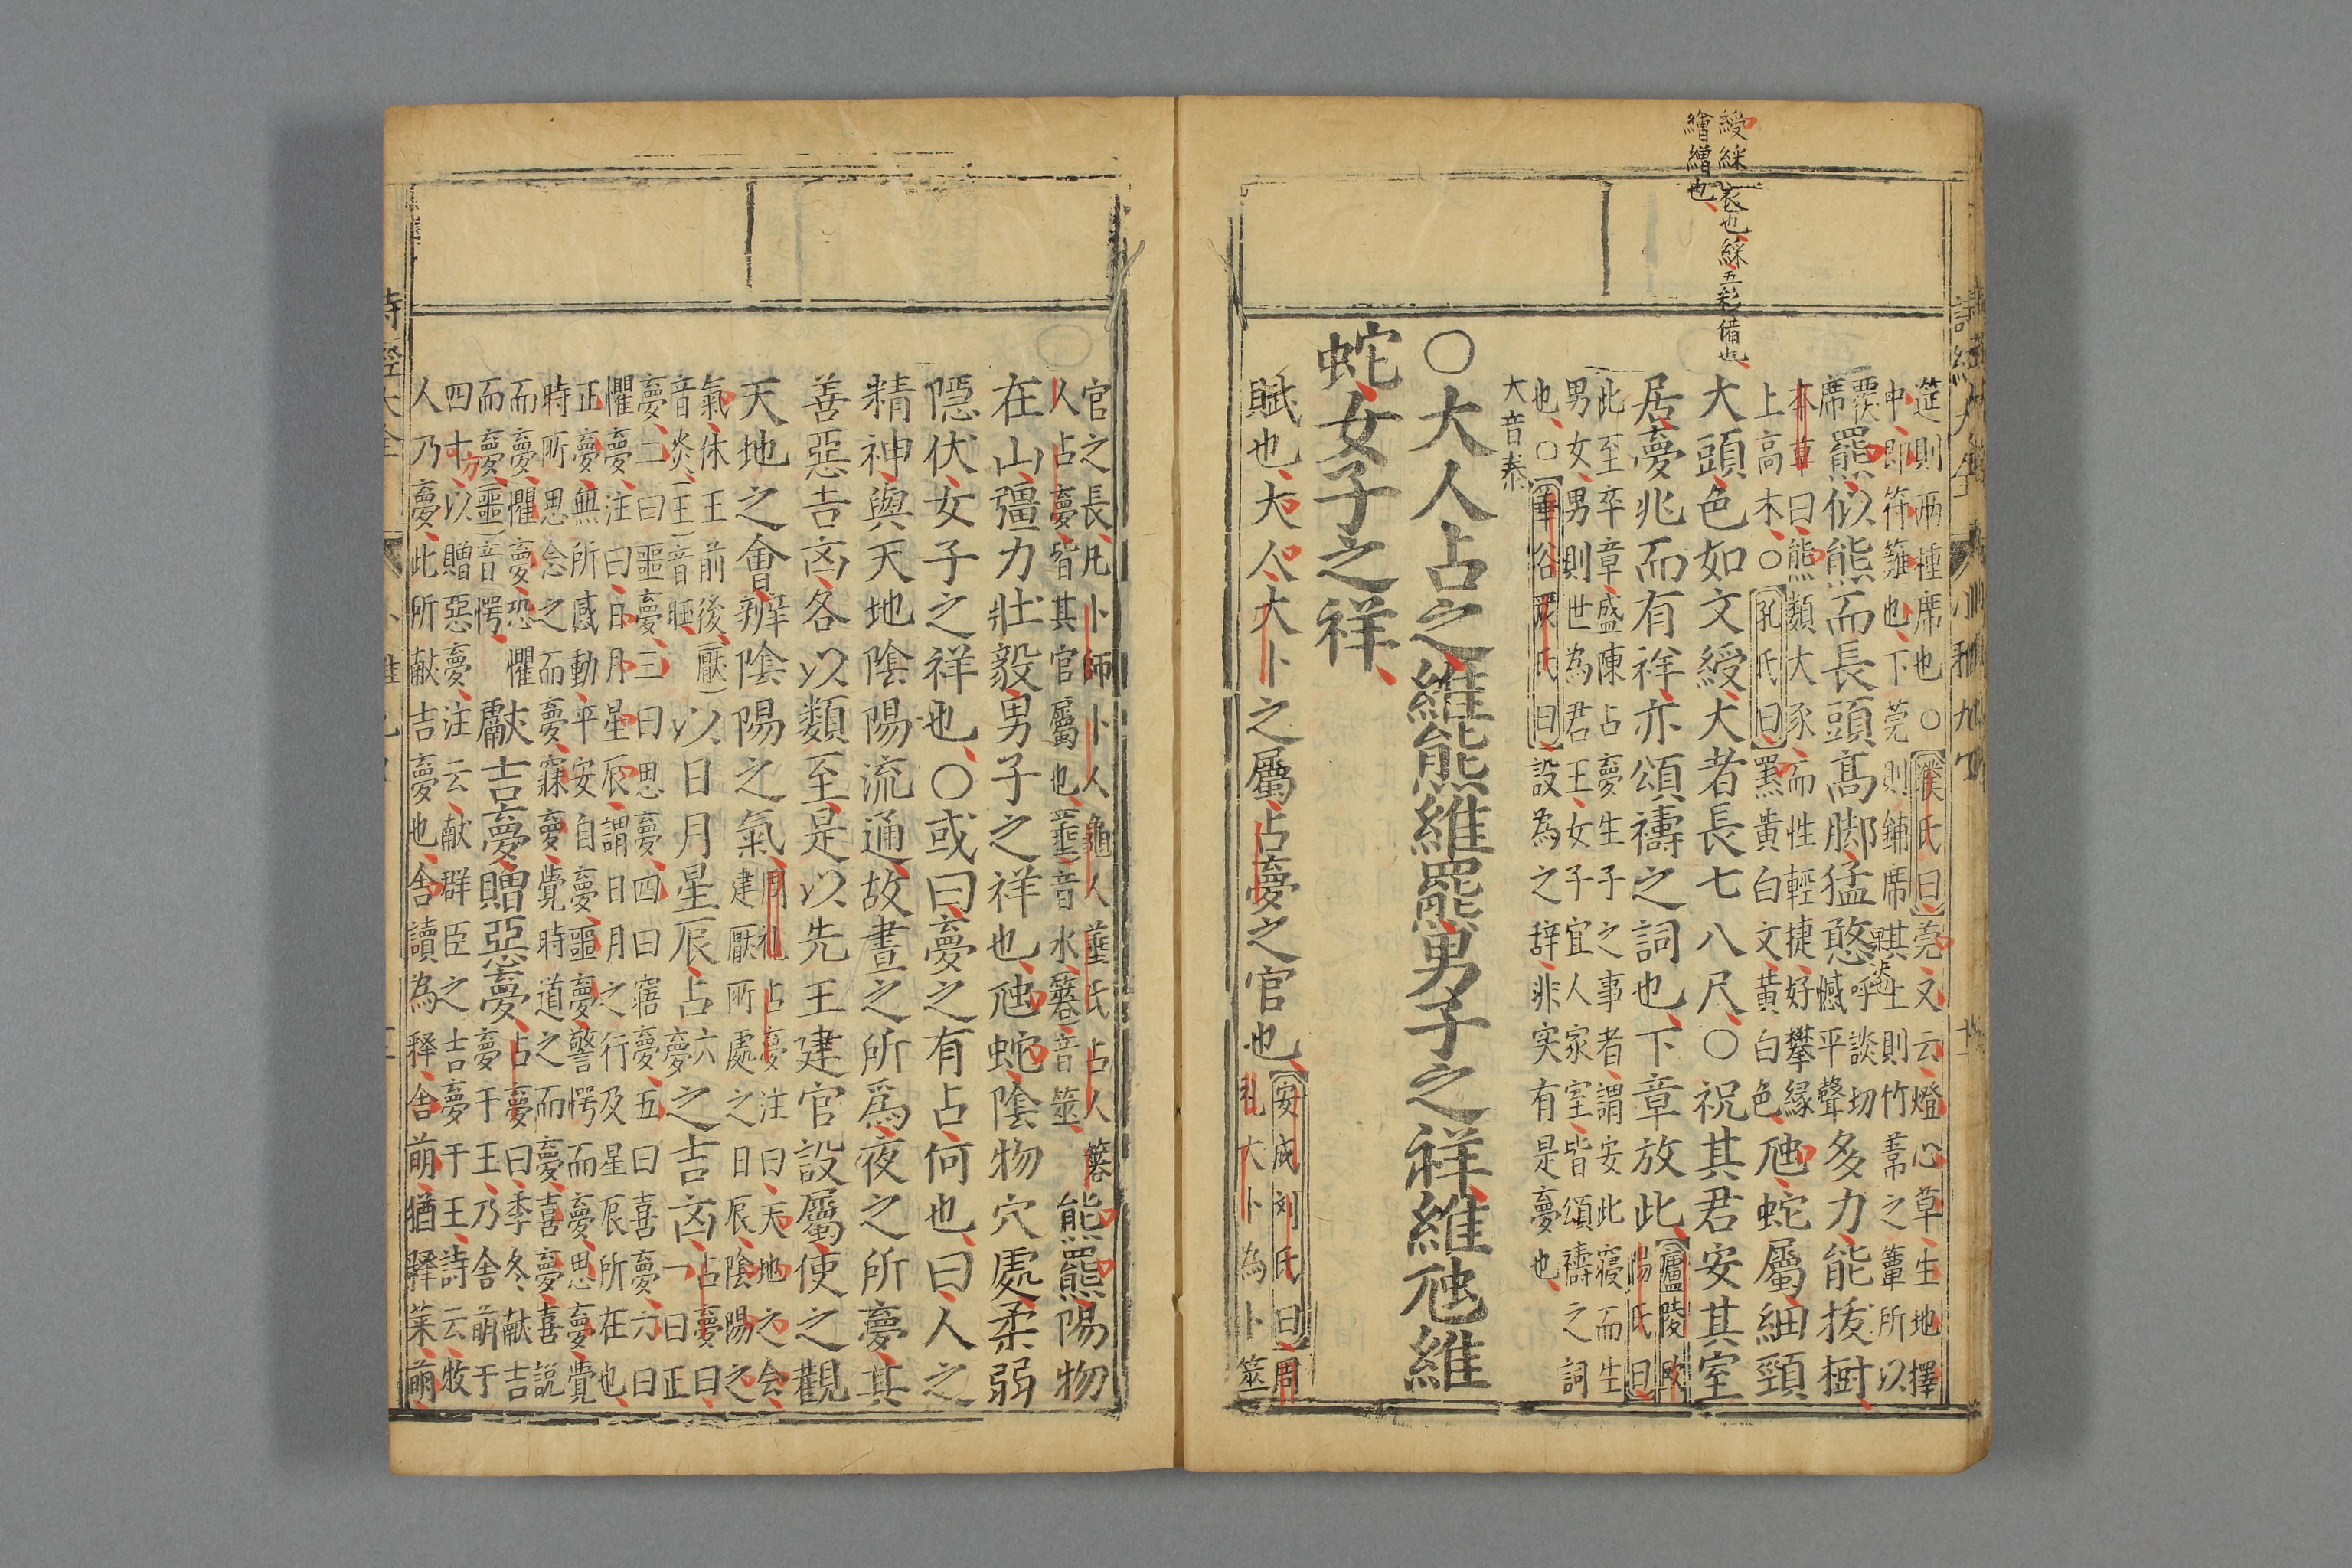 綬綵衣也綵五彩備也
繒繒也
筵則兩種席也○濮氏曰莞又云燈心草生地擇
中即符蘺也下莞則鋪席其上則竹葦之簟所以
覆席
羆似熊而長頭高脚猛憨憾平聲呼談切多力能拔樹
本草曰熊類大豕而性輕捷好攀緣
上高木○孔氏曰羆黃白文黃白色
虺蛇屬細頸
大頭色如文綬大者長七八尺○祝其君安其室
居夢兆而有祥亦頌禱之詞也下章放此廬陵歐
陽氏曰
此至卒章盛陳占夢生子之事者謂安此寢而生
男女男則世為君王女子宜人家室皆頌禱之詞
也○華谷嚴氏曰設為之辞非实有是夢也
大音泰
○大人占之維熊維羆男子之祥維虺維
蛇女子之祥
賦也大人大卜之屬占夢之官也安成刘氏曰周
礼大卜為卜筮
官之長凡卜師卜人龜人菙氏占人簭
人占夢皆其官屬也菙音水簭音筮
熊羆陽物
在山彊力壯毅男子之祥也虺蛇陰物穴處柔弱
隱伏女子之祥也○或曰夢之有占何也曰人之
精神與天地陰陽流通故晝之所爲夜之所夢其
善惡吉凶各以類至是以先王建官設屬使之觀
天地之會辨陰陽之氣周礼占夢注曰天地之会
建厭所處之日辰陰陽之
氣休王前後厭
音炎王音旺
以日月星辰占六
夢之吉凶占夢曰
一曰正
夢二曰噩夢三曰思夢四曰寤夢五曰喜夢六曰
懼夢注曰日月星辰謂日月之行及星辰所在也
正夢無所感動平安自夢噩夢警愕而夢思夢覺
時所思念之而夢寐夢覺時道之而夢喜夢喜説
而夢懼夢恐懼
而夢噩音愕
獻吉夢贈惡夢占夢曰季冬献吉
夢于王乃舍萌于
四方以贈惡夢注云献群臣之吉夢于王詩云牧
人乃夢此所献吉夢也舍讀為释舍萌猶释菜萌